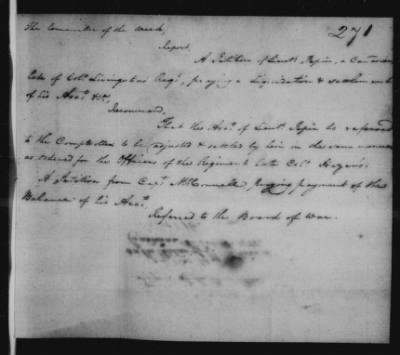 271
The Committee of the Week,
Report,
A Petition of Lieut. Pepin, a Canadian
late of Colo. Livingstons Regt., praying a Liquidation & settlement
of his Acct. &c,
Recommend,
That the Acct. of Lieut. Pepin be referred
to the Comptroller to be adjusted & settled by him in the same manner
as ordered for the Officers of the Regiment late Colo. Hazen's.
A Petition from Capt. McConnell praying payment of the
Balance of his Acct.
Referred to the Board of War.